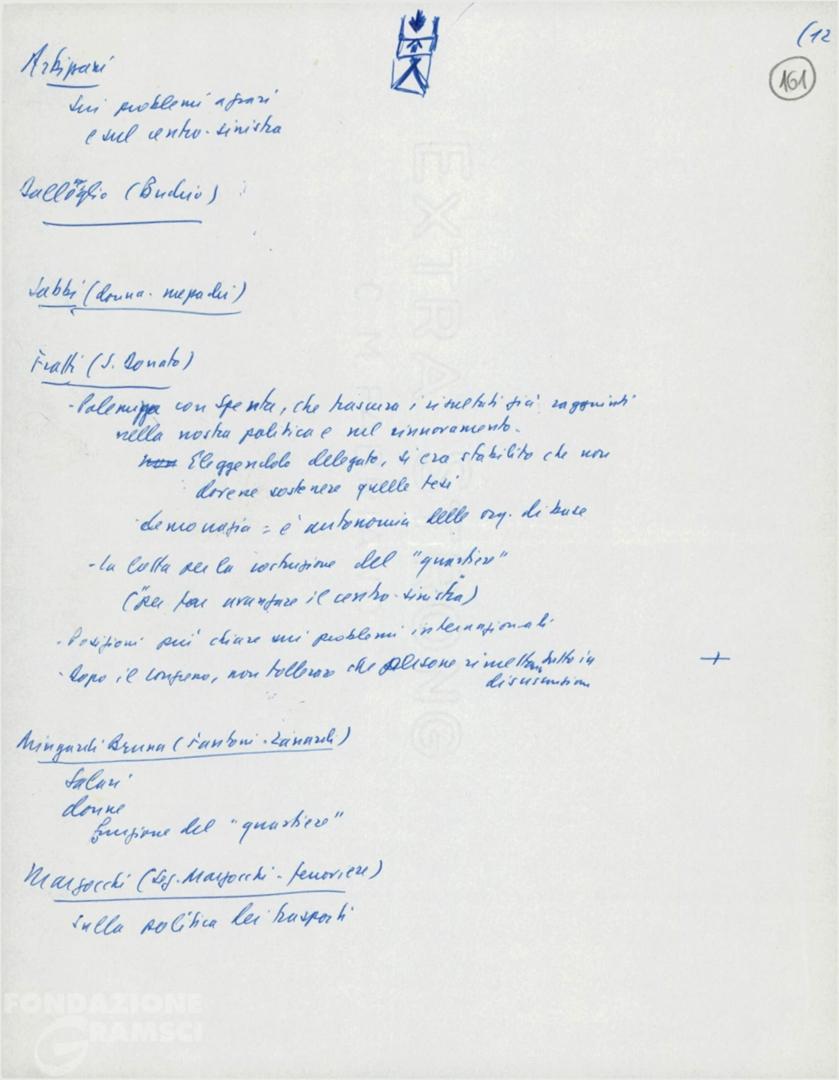 (12
161
Artipani
sui problemi agrari
e sul centro-sinistra
Dall'Oglio (Budrio)
Sabbi (donna -
Fratti (S. Donato)
- Polemizza con Spenta, che trascura i risultati già raggiunti
nella nostra politica e nel rinnovamento.
non Eleggendolo delegato, si era stabilito che non
dovene sostenere quelle tesi
democrazia = è autonomia delle org. di base
- la lotta per la costruzione del "quartiere"
("per far avanzare il centro-sinistra")
- Posizioni più chiare sui problemi internazionali
- Dopo il congresso, non tollerare che persone rimettano tutto in
discussione
+
Mingardi Bruna (Fantoni-Zanardi)
Salari
donne
funzione del "quartiere"
Margocchi (Sez. Margocchi - ferroviere)
sulla politica dei trasporti
EXTRA STRONG
FONDAZIONE
GRAMSCI